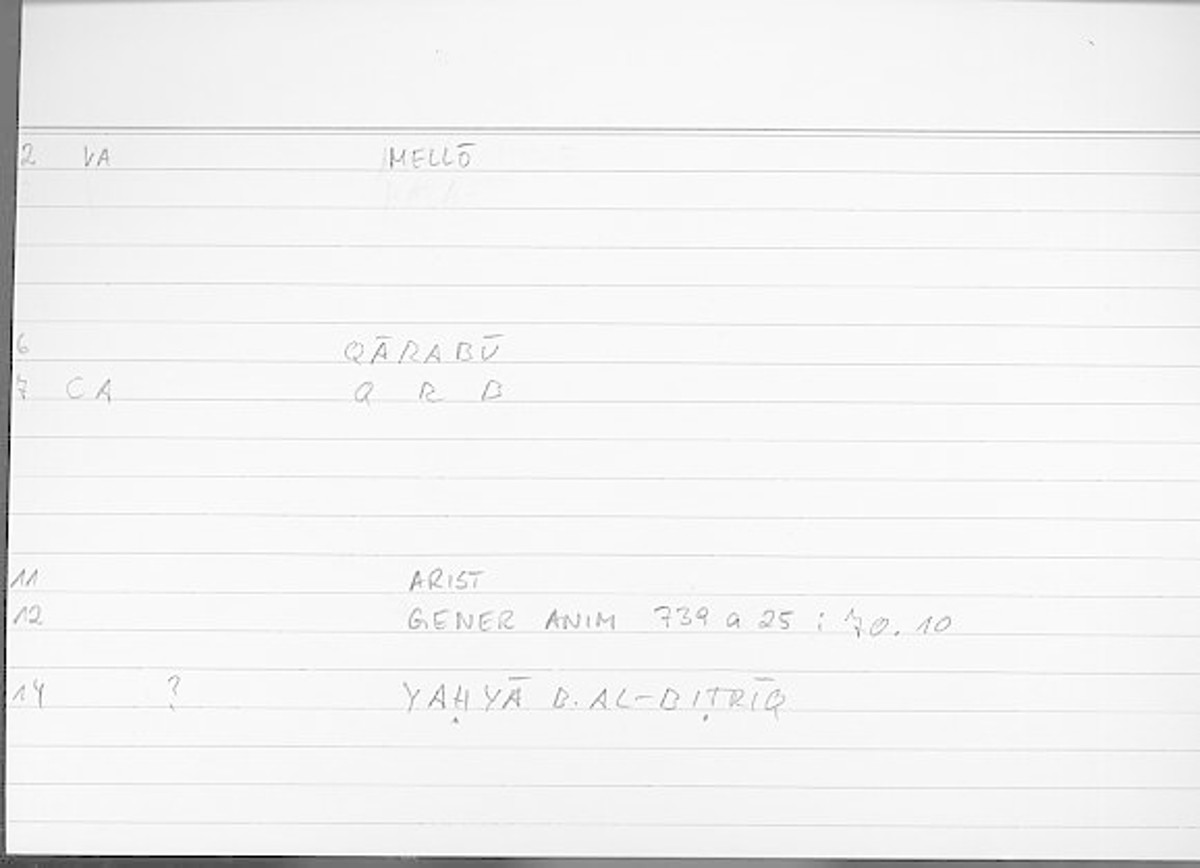 2 VA MELLŌ
6 QĀRABŪ
7 CA Q R B
11 ARIST
12 GENER ANIM 739 a 25 ; 70.10
14 ? YAḤYĀ B. AL-BIṬRĪQ